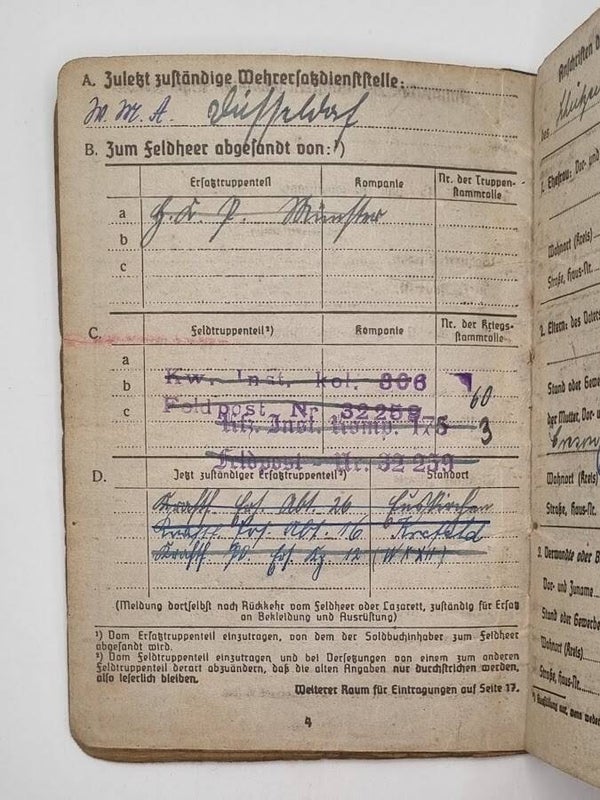 A. Zuletzt zuständige Wehrersatzdienststelle:
W. M. A. Düsseldorf
B. Zum Feldheer abgesandt von:¹)
Ersatztruppenteil Kompanie Nr. der Truppen-
stammrolle
a H. K. P. Münster
b
c
C. Feldtruppenteil²) Kompanie Nr. der Kriegs-
stammrolle
a
b Kw. Inst. kol. 806
60
c Feldpost Nr. 32259
Kfz. Inst. Komp. 175 3
Feldpost - Nr. 32 259
D. Jetzt zuständiger Ersatztruppenteil²) Standort
Kraftf. Ers. Abt. 26 Euskirchen
Kraftf. Ers. Abt. 16 Krefeld
Kraftf. Ers. 12
(Meldung dortselbst nach Rückkehr vom Feldheer oder Lazarett, zuständig für Ersatz
an Bekleidung und Ausrüstung)
¹) Vom Ersatztruppenteil einzutragen, von dem der Soldbuchinhaber zum Feldheer
abgesandt wird.
²) Vom Feldtruppenteil einzutragen und bei Versetzungen von einem zum anderen
Feldtruppenteil derart abzuändern, daß die alten Angaben nur durchstrichen werden,
also leserlich bleiben.
Weiterer Raum für Eintragungen auf Seite 17.
4
Anschriften
des
1. Ehefrau: Vor- und
Wohnort (Kreis)
Straße, Haus-Nr.
2. Eltern: des Vaters
Stand oder Gewe
der Mutter, Vor- u
Wohnort (Kreis)
Straße, Haus-Nr.
3. Verwandte oder B
Vor- und Zuname
Stand oder Gewerbe
Wohnort (Kreis)
Straße, Haus-Nr.